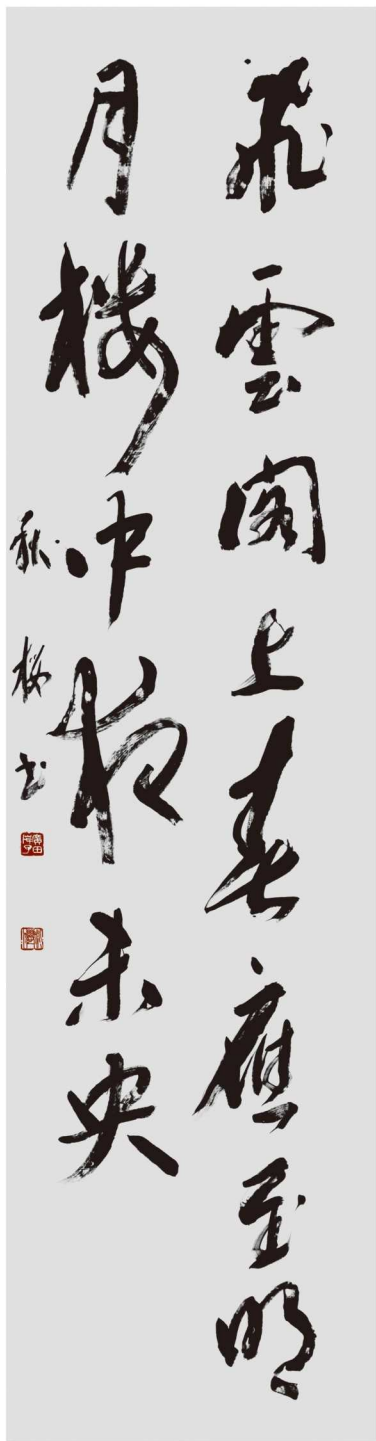 飛雲閣上春應至明
月樓中夜未央
秋櫻書